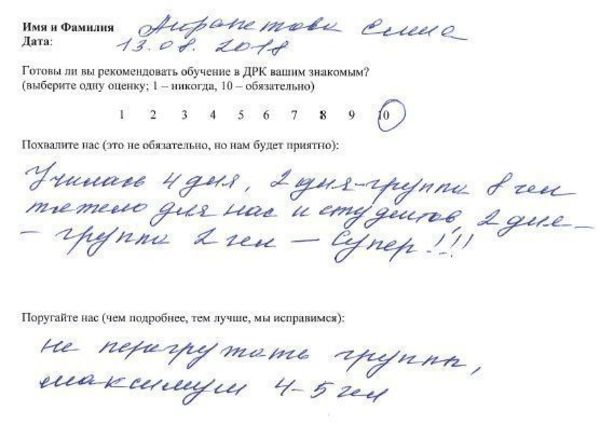 Имя и Фамилия Айрапетова Елена
Дата: 13.08.2018
Готовы ли вы рекомендовать обучение в ДРК вашим знакомым?
(выберите одну оценку; 1 – никогда, 10 – обязательно)
1 2 3 4 5 6 7 8 9 10
Похвалите нас (это не обязательно, но нам будет приятно):
Училась 4 дня, 2 дня-группа 8 чел
тяжело для нас и студентов, 2 дня –
– группа 2 чел – Супер!!!
Поругайте нас (чем подробнее, тем лучше, мы исправимся):
не перегружать группы,
максимум 4-5 чел